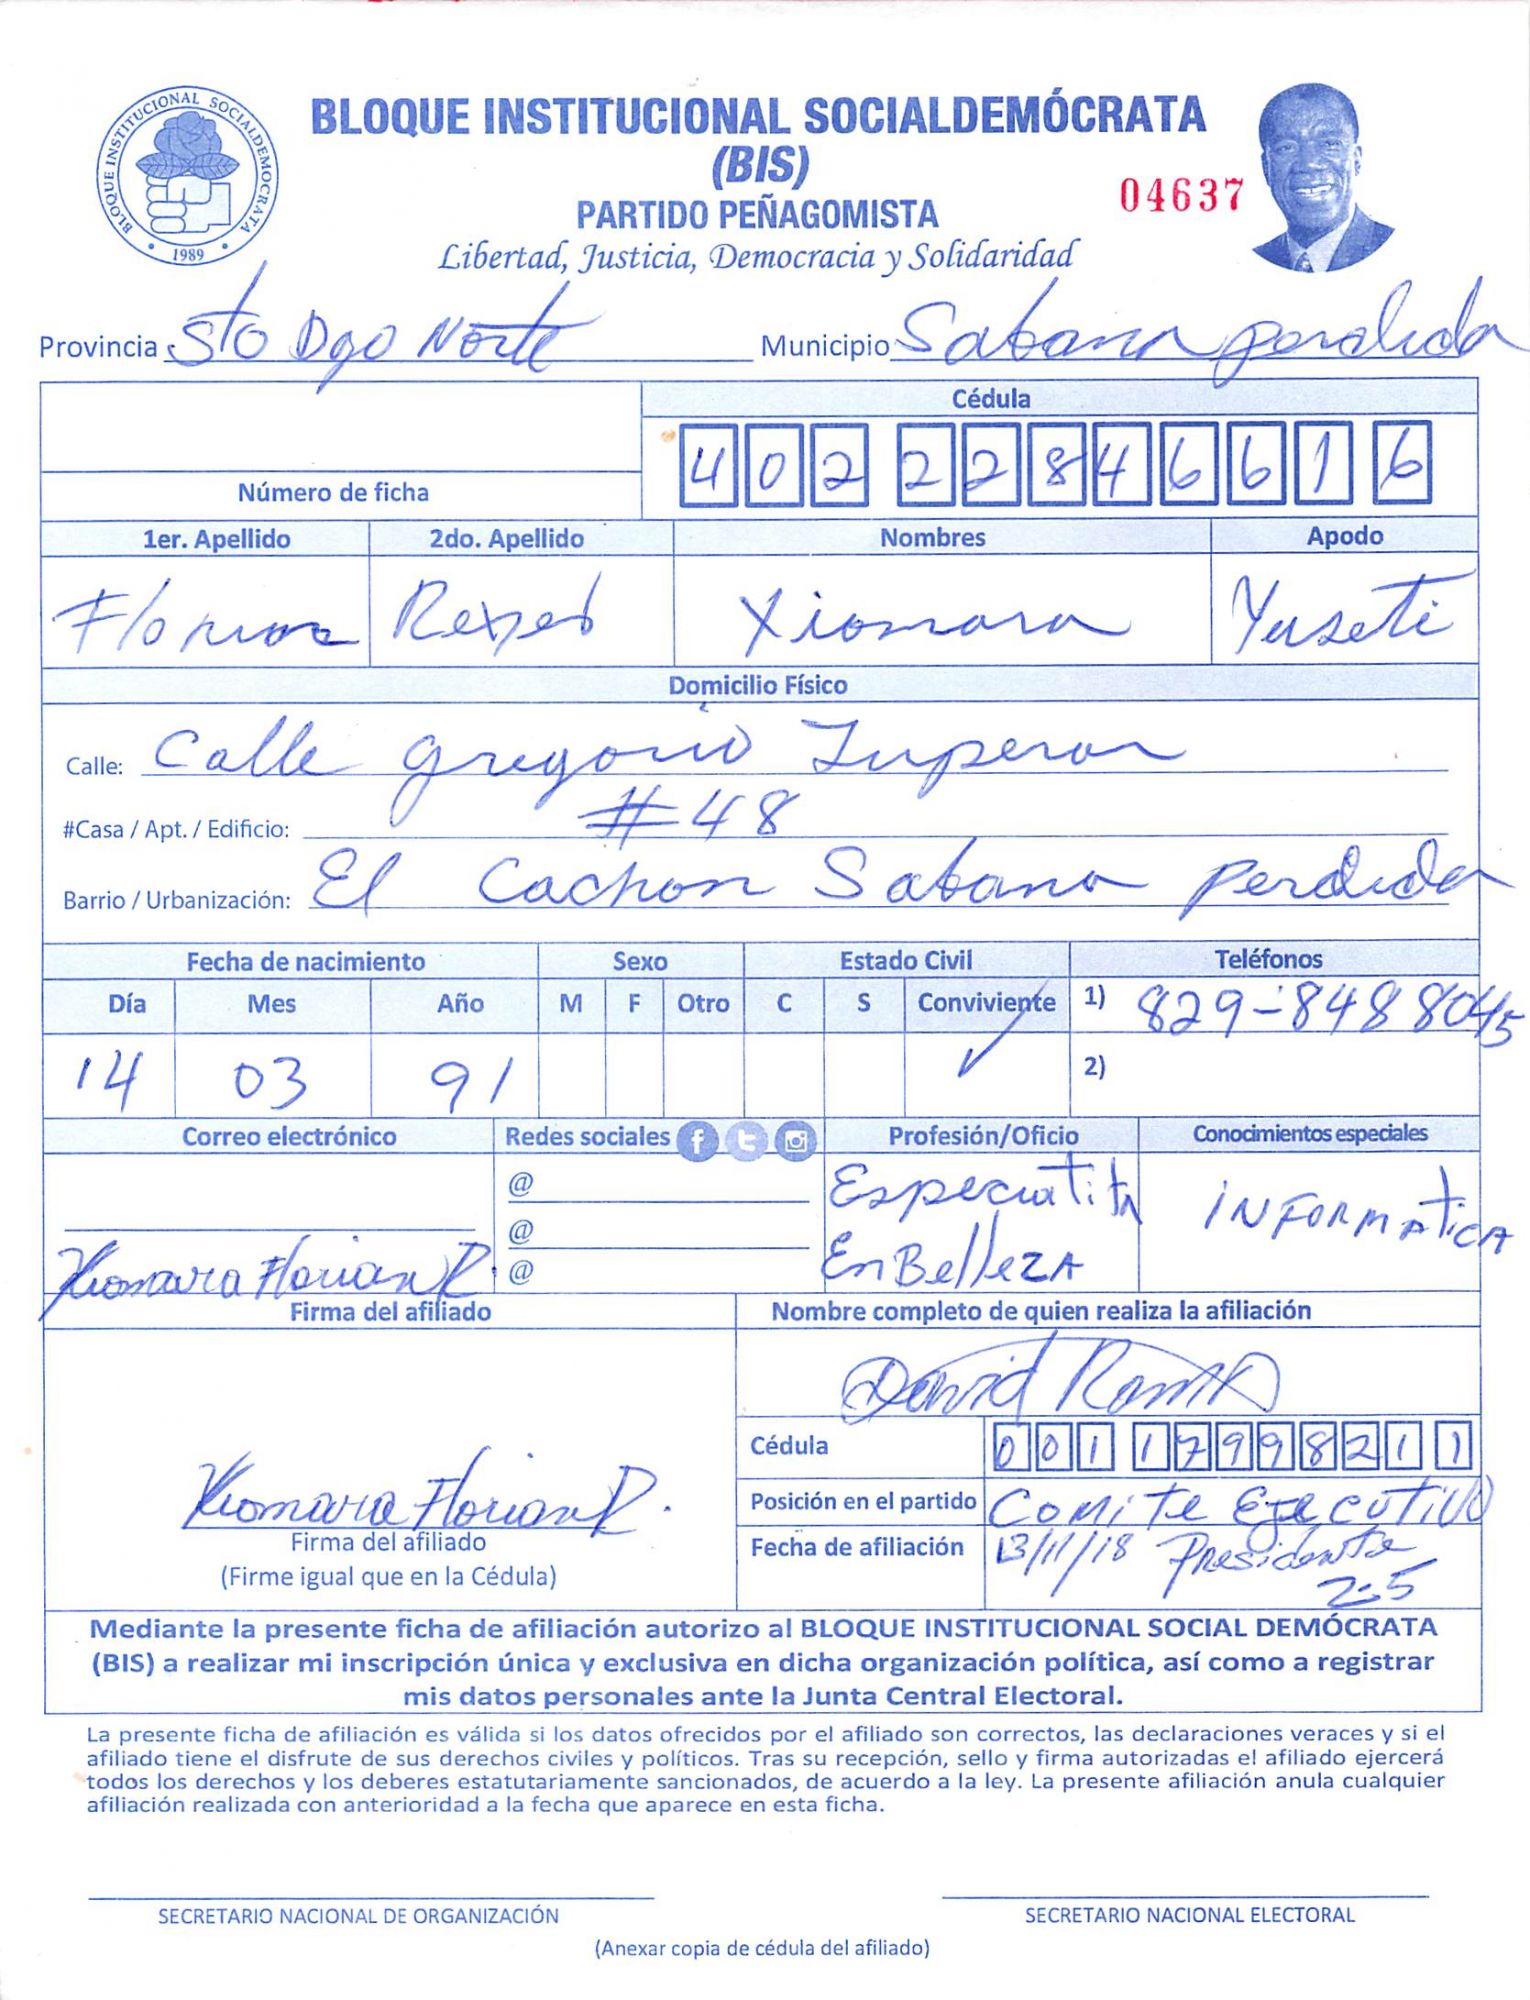 BLOQUE INSTITUCIONAL SOCIALDEMOCRATA
1989
BLOQUE INSTITUCIONAL SOCIALDEMÓCRATA
(BIS)
PARTIDO PEÑAGOMISTA
04637
Libertad, Justicia, Democracia y Solidaridad
Provincia Sto Dgo Norte Municipio Sabana perdida
Cédula
402 2284661 6
Número de ficha
1er. Apellido 2do. Apellido Nombres Apodo
Florian Reyes Xiomara Yuseti
Domicilio Físico
Calle: Calle gregorio Luperon
#Casa / Apt. / Edificio: #48
Barrio / Urbanización: El Cachon Sabana perdida
Fecha de nacimiento Sexo Estado Civil Teléfonos
Día Mes Año M F Otro C S Conviviente 1) 829-848 8045
14 03 91 ✓ 2)
Correo electrónico Redes sociales Profesión/Oficio Conocimientos especiales
@ Especiatita INFORMATICA
@ En BelleZA
Xiomara Florian R @
Firma del afiliado Nombre completo de quien realiza la afiliación
David Ramos
Cédula 001 1799821 1
Xiomara Florian R.
Posición en el partido COMITE EJECUTIVO
Firma del afiliado Fecha de afiliación 13/11/18 Presidenta
(Firme igual que en la Cédula) 2-5
Mediante la presente ficha de afiliación autorizo al BLOQUE INSTITUCIONAL SOCIAL DEMÓCRATA
(BIS) a realizar mi inscripción única y exclusiva en dicha organización política, así como a registrar
mis datos personales ante la Junta Central Electoral.
La presente ficha de afiliación es válida si los datos ofrecidos por el afiliado son correctos, las declaraciones veraces y si el
afiliado tiene el disfrute de sus derechos civiles y políticos. Tras su recepción, sello y firma autorizadas el afiliado ejercerá
todos los derechos y los deberes estatutariamente sancionados, de acuerdo a la ley. La presente afiliación anula cualquier
afiliación realizada con anterioridad a la fecha que aparece en esta ficha.
SECRETARIO NACIONAL DE ORGANIZACIÓN SECRETARIO NACIONAL ELECTORAL
(Anexar copia de cédula del afiliado)